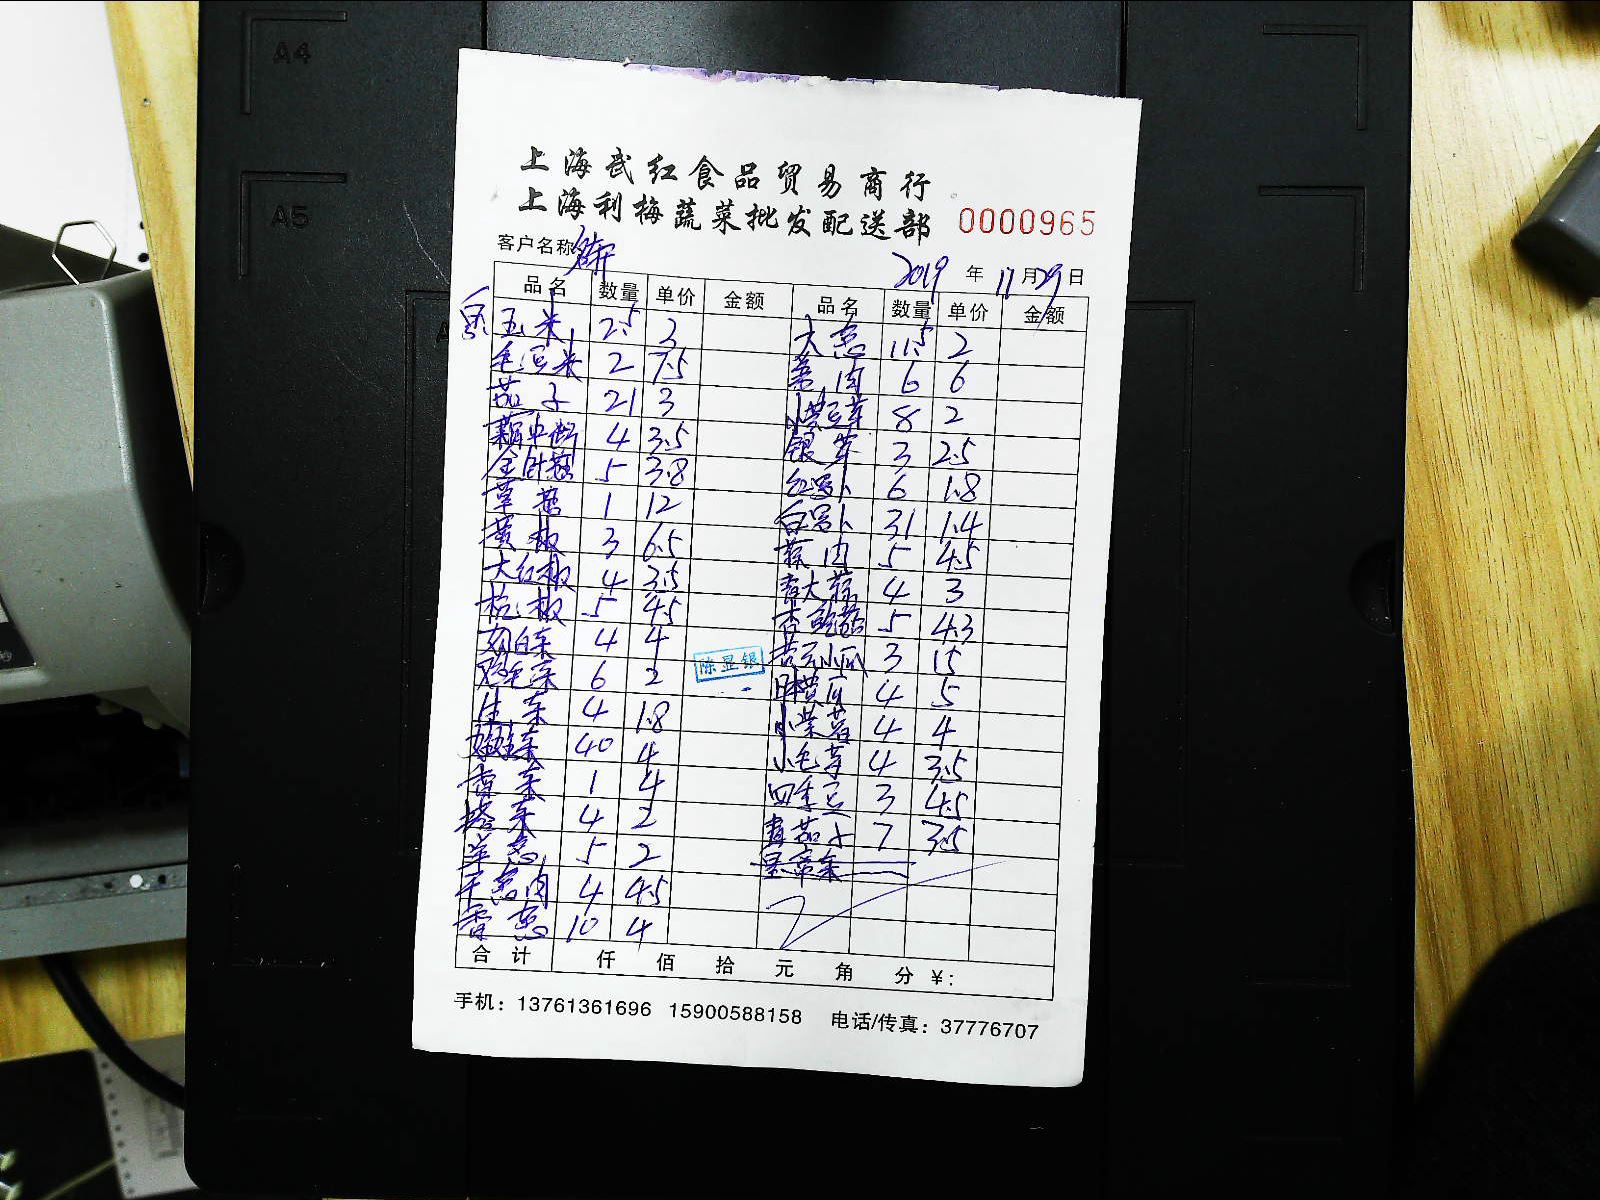 A4
A5
上海武红食品贸易商行
上海利梅蔬菜批发配送部 0000965
客户名称
2019 年 11 月 29 日
品名 数量 单价 金额 品名 数量 单价 金额
玉米 2.5 3 大葱 11.5 2
毛豆米 2 7.5 姜肉 6 6
茄子 21 3 小黄豆芽 8 2
藕中断 4 3.5 银芽 3 2.5
金针菇 5 3.8 红罗卜 6 1.8
草菇 1 12 白罗卜 31 1.4
黄椒 3 6.5 蒜肉 5 4.5
大红椒 4 3.5 青大蒜 4 3
杭椒 5 4.5 杏鲍菇 5 4.3
奶白菜 4 4 3 15
鸡毛菜 6 2 日本黄瓜 4 5
生菜 4 1.8 小紫茄 4 4
娃娃菜 40 4 小毛芋 4 3.5
香菜 1 4 四季豆 3 4.5
塔菜 4 2 青茄子 7 3.5
洋葱 5 2
干葱肉 4 4.5
香葱 10 4
陈显银
合计 仟 佰 拾 元 角 分 ¥:
手机：13761361696 15900588158 电话/传真：37776707